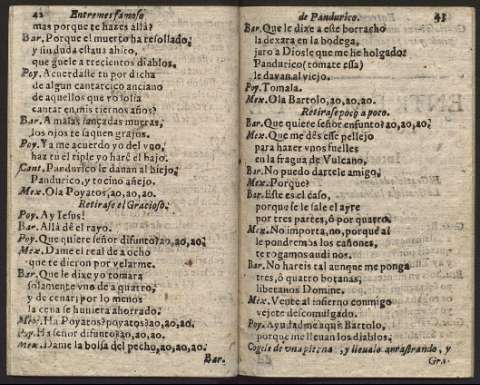 42 Entremes famoso
mas porque te hazes allà?
Bar. Porque el muerto ha resollado,
y sin duda estaua ahito,
que guele a trecientos diablos.
Poy. Acuerdaste tu por dicha
de algun cantarcico anciano
de aquellos que yo solia
cantar en mis tiernos años?
Bar. A malas lançadas mueras,
los ojos te saquen grajos.
Poy. Ya me acuerdo yo del vno,
haz tu el tiple yo harè el bajo.
Cant. Pandurico le dauan al biejo,
Pandurico, y tocino añejo.
Mex. Ola Poyatos, ao, ao, ao.
Retirase el Gracioso.
Poy. Ay Iesus!
Bar. Allà dè el rayo.
Poy. Que quiere señor difunto? ao, ao, ao,
Mex. Dame el real de a ocho
que te dieron por velarme.
Bar. Que le dixe yo tomara
solamente vno de a quatro,
y de cenar; por lo menos
la cena se huuiera ahorrado.
Mex. Ha Poyatos? poyatos? ao, ao, ao.
Poy. Ha señor difunto? ao, ao, ao.
Mex. Dame la bolsa del pecho, ao, ao, ao.
Bar.
de Pandurico. 43
Bar. Que le dixe a este borracho
la dexara en la bodega,
juro a Dios le que me he holgado:
Pandurico (tomate essa)
le dauan al viejo.
Poy. Tomala.
Mex. Ola Bartolo, ao, ao, ao.
Retirase poco a poco.
Bar. Que quiere señor enfunto? ao, ao, ao,
Mex. Que me dès esse pellejo
para hazer vnos fuelles
en la fragua de Vulcano,
Bar. No puedo dartele amigo,
Mex. Porque?
Bar. Este es el caso,
porque se le sale el ayre
por tres partes, ò por quatro.
Mex. No importa, no, porque al
le pondremos los cañones,
te rogamos audi nos.
Bar. No hareis tal aunque me ponga
tres, ò quatro botanas,
liberanos Domine.
Mex. Vente al infierno conmigo
vejete descomulgado.
Poy. Ayudadme aqui Bartolo,
porque me lleuan los diablos.
Cogele de vna pierna, y lleualo arrastrando, y
Gra.